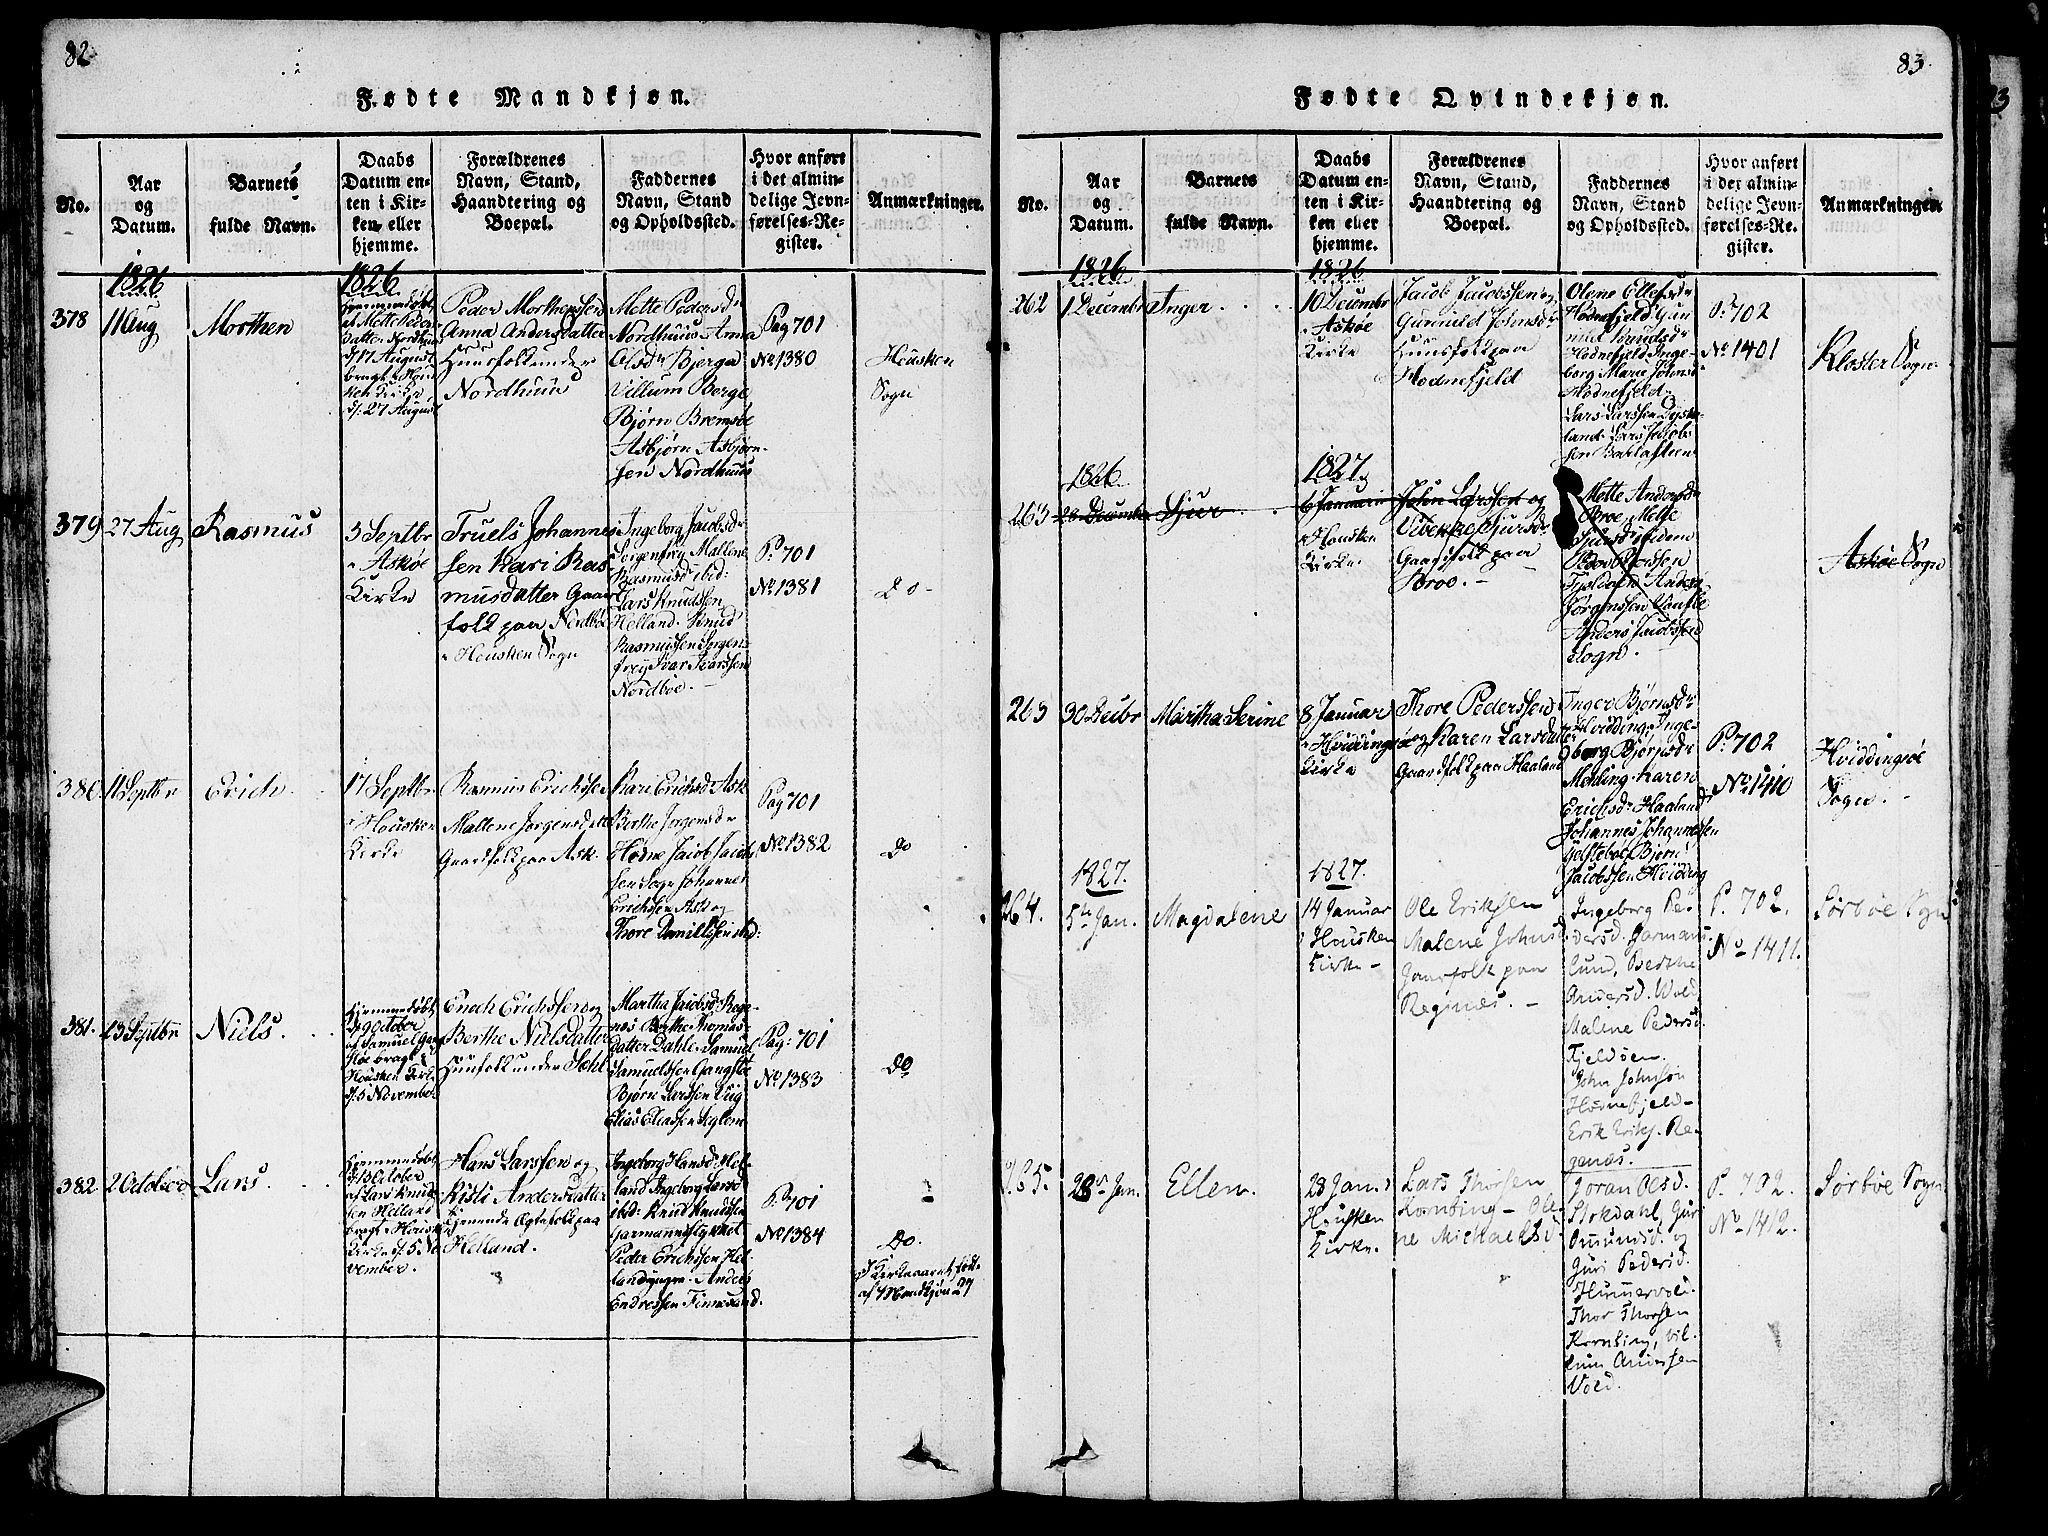 82.
Fødte Mandkjøn.
No.
Aar
og
Datum.
Barnets
fulde Navn.
Daabs
Datum en-
ten i Kir-
ken eller
hjemme.
Forældrenes
Navn, Stand,
Haandtering og
Boepæl.
Faddernes
Navn, Stand
og Opholdssted.
Hvor anført
i det almin-
delige Jevn-
førelses-Re-
gister.
Anmærkninger.
1826
1826
378
11 Aug
Morthen
Hjemmedøbt
af Mette Peders
datter Nordhuus
d. 17 August
bragt i Hous
ken Kirke
d. 27 August
Peder Morthenssen
Anna Andersdatter
Huusfolk under
Nordhuus
Mette Pedersdr
Nordhuus Anna
Olsdr Bjerga
Villum Berge
Bjørn Bremsøe
Asbjørn Asbjørn-
sen Nordhuus
Pag 701
No 1380
Housken
Sogn
379
27 Aug
Rasmus
3 Septbr
i Askøe
Kirke
Truels Johannes
sen Kari Ras-
musdatter Gaard
folk paa Nordbøe
i Housken Sogn
Ingeborg Jacobsdr
Sorgenfrey Mallene
Rasmusdr ibid:
Lars Knudssen
Helland. Knud
Rasmussen Sorgen
frey Ivar Ivarssen
Nordbøe.
P. 701
No 1381
Do
380
11 Septbr
Erich
17 Septbr
i Housken
Kirke
Rasmus Erichssen
Mallene Jørgensdatt
Gaardfolk paa Ask.
Kari Erichsdr Ask
Berthe Jørgensdr
Hodne Jacob Jacob
sen Sogn Johannes
Erichssen Ask og
Thore Danielssen ibid:
Pag 701
No 1382
Do
381.
23 Septbr
Niels.
Hjemmedøbt
d. 9 October
af Samuel Gang
støe bragt i
Housken Kirke
d. 5 November
Enoch Erichssen og
Berthe Nielsdatter
Huusfolk under Sæhl
Martha Jacobsdr Rege-
næs Berthe Thomas-
datter Dahle. Samuel
Samuelssen Gangstøe
Bjørn Larssen Viig
Elias Eliassen Seglem
Pag: 701
No 1383
Do
382
2 October
Lars.
Hjemmedøbt
d. 13 October
af Lars Knud
sen Helland
bragt i Housken
Kirke d. 5 No-
vember.
Hans Larssen og
Kisti Andersdatter
tjenende Ægtefolk paa
Helland.
Ingeborg Hansdr Hel-
land Ingeborg Larsd
ibid: Knud Knudssen
Garmannestykket
Peder Erichssen Hel-
land yngre. Anders
Endressen Finnesand.
P. 701
No 1384
Do.
I Kirkeaaret født
af Mandkjøn 27
83.
Fødte Qvindekjøn.
No.
Aar
og
Datum.
Barnets
fulde Navn.
Daabs
Datum en-
ten i Kir-
ken eller
hjemme.
Forældrenes
Navn, Stand,
Haandtering og
Boepæl.
Faddernes
Navn, Stand
og Opholdssted.
Hvor anført
i det almin-
delige Jevn-
førelses-Re-
gister.
Anmærkninger.
1826
1826
262
1 Decembr
Inger
10 Decembr
i Askøe
Kirke
Jacob Jacobssen og
Gunnild Johnsdr
Huusfolk paa
Hodnefjeld
Olene Ellefsdr
Hodnefjeld Gun
nild Knudsdr
Hodnefjeld Inge-
borg Marie Johnsd
Hodnefjeld
Lars Larssen Dyske-
land Lars Jacobs
sen Barlasteen
P. 702
No 1401
Kloster Sogn
1826
1827
263
28 Decembr
Sjur
6 Januar
i Housken
Kirke
John Larssen og
Vibeke Sjursdr
Gaardfolk paa
Broe.
Mette Andersdr
Broe Mette
Sjursdr
Anders
Jørgenssen
Anders Jacobssen
Sogn.
Askøe Sogn
263
30 Decbr
Martha Serine
8 Januar
i Hviddingsøe
Kirke
Thore Pederssen
og Karen Larsdatter
Gaardfolk paa Haaland
Inger Bjørnsdr
Hvidding, Inge-
borg Bjørnsdr
Meling. Karen
Erichsdr Haaland
Johannes Johannessen
Gjelstebøe Bjørn
Jacobssen Hvidding
P. 702
No 1410
Hviddingsøe
Sogn.
1827.
1827.
264.
5te Jan.
Magdalene
14 Januar
i Housken
Kirke
Ole Eriksen
Malene Johnsd.
Gaarfolk paa
Reginæs.
Ingeborg Pe-
dersd. Jarmans-
lund, Berthe
Andersd. Wold
Malene Pedersd.
Fjeldøen.
John Johnsøn
Hodnefjeld
Erik Eriks. Re-
genæs.
P. 702.
No 1411.
Sørbøe Sogn
265.
28de Jan.
Ellen.
28 Jan. i
Housken
Kirke.
Lars Thorsen
Kornbing - Ole-
ne Michaelsd.
Joran Olesd.
Stokdahl, Guri
Omundsd. og
Guri Pedersd.
Hummervold.
Thor Thorsen
Kornbing, Vil-
lum Anerssen
Vold.
P. 702.
No 1412.
Sørbøe Sogn